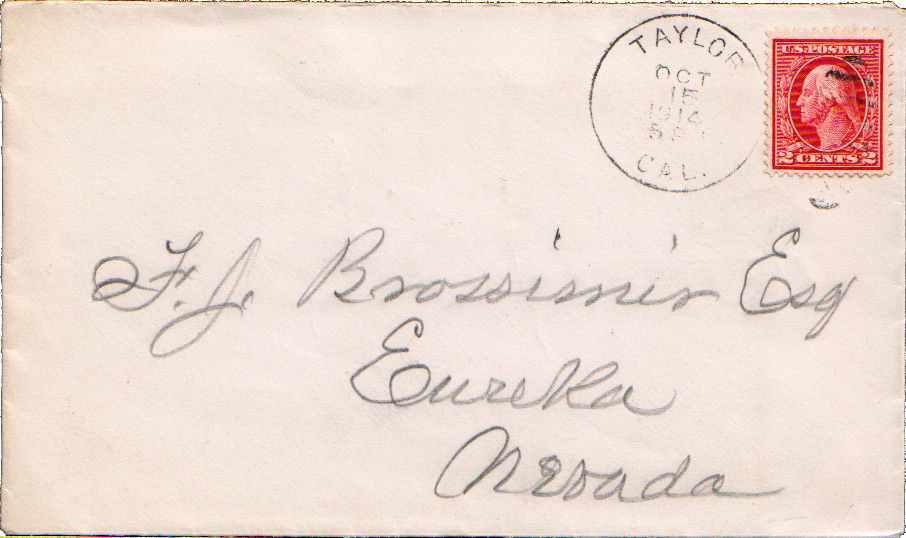 TAYLOR
OCT
15
1914
CAL.
U.S. POSTAGE
2 CENTS 2
F. J. Brossimir Esq
Eureka
Nevada